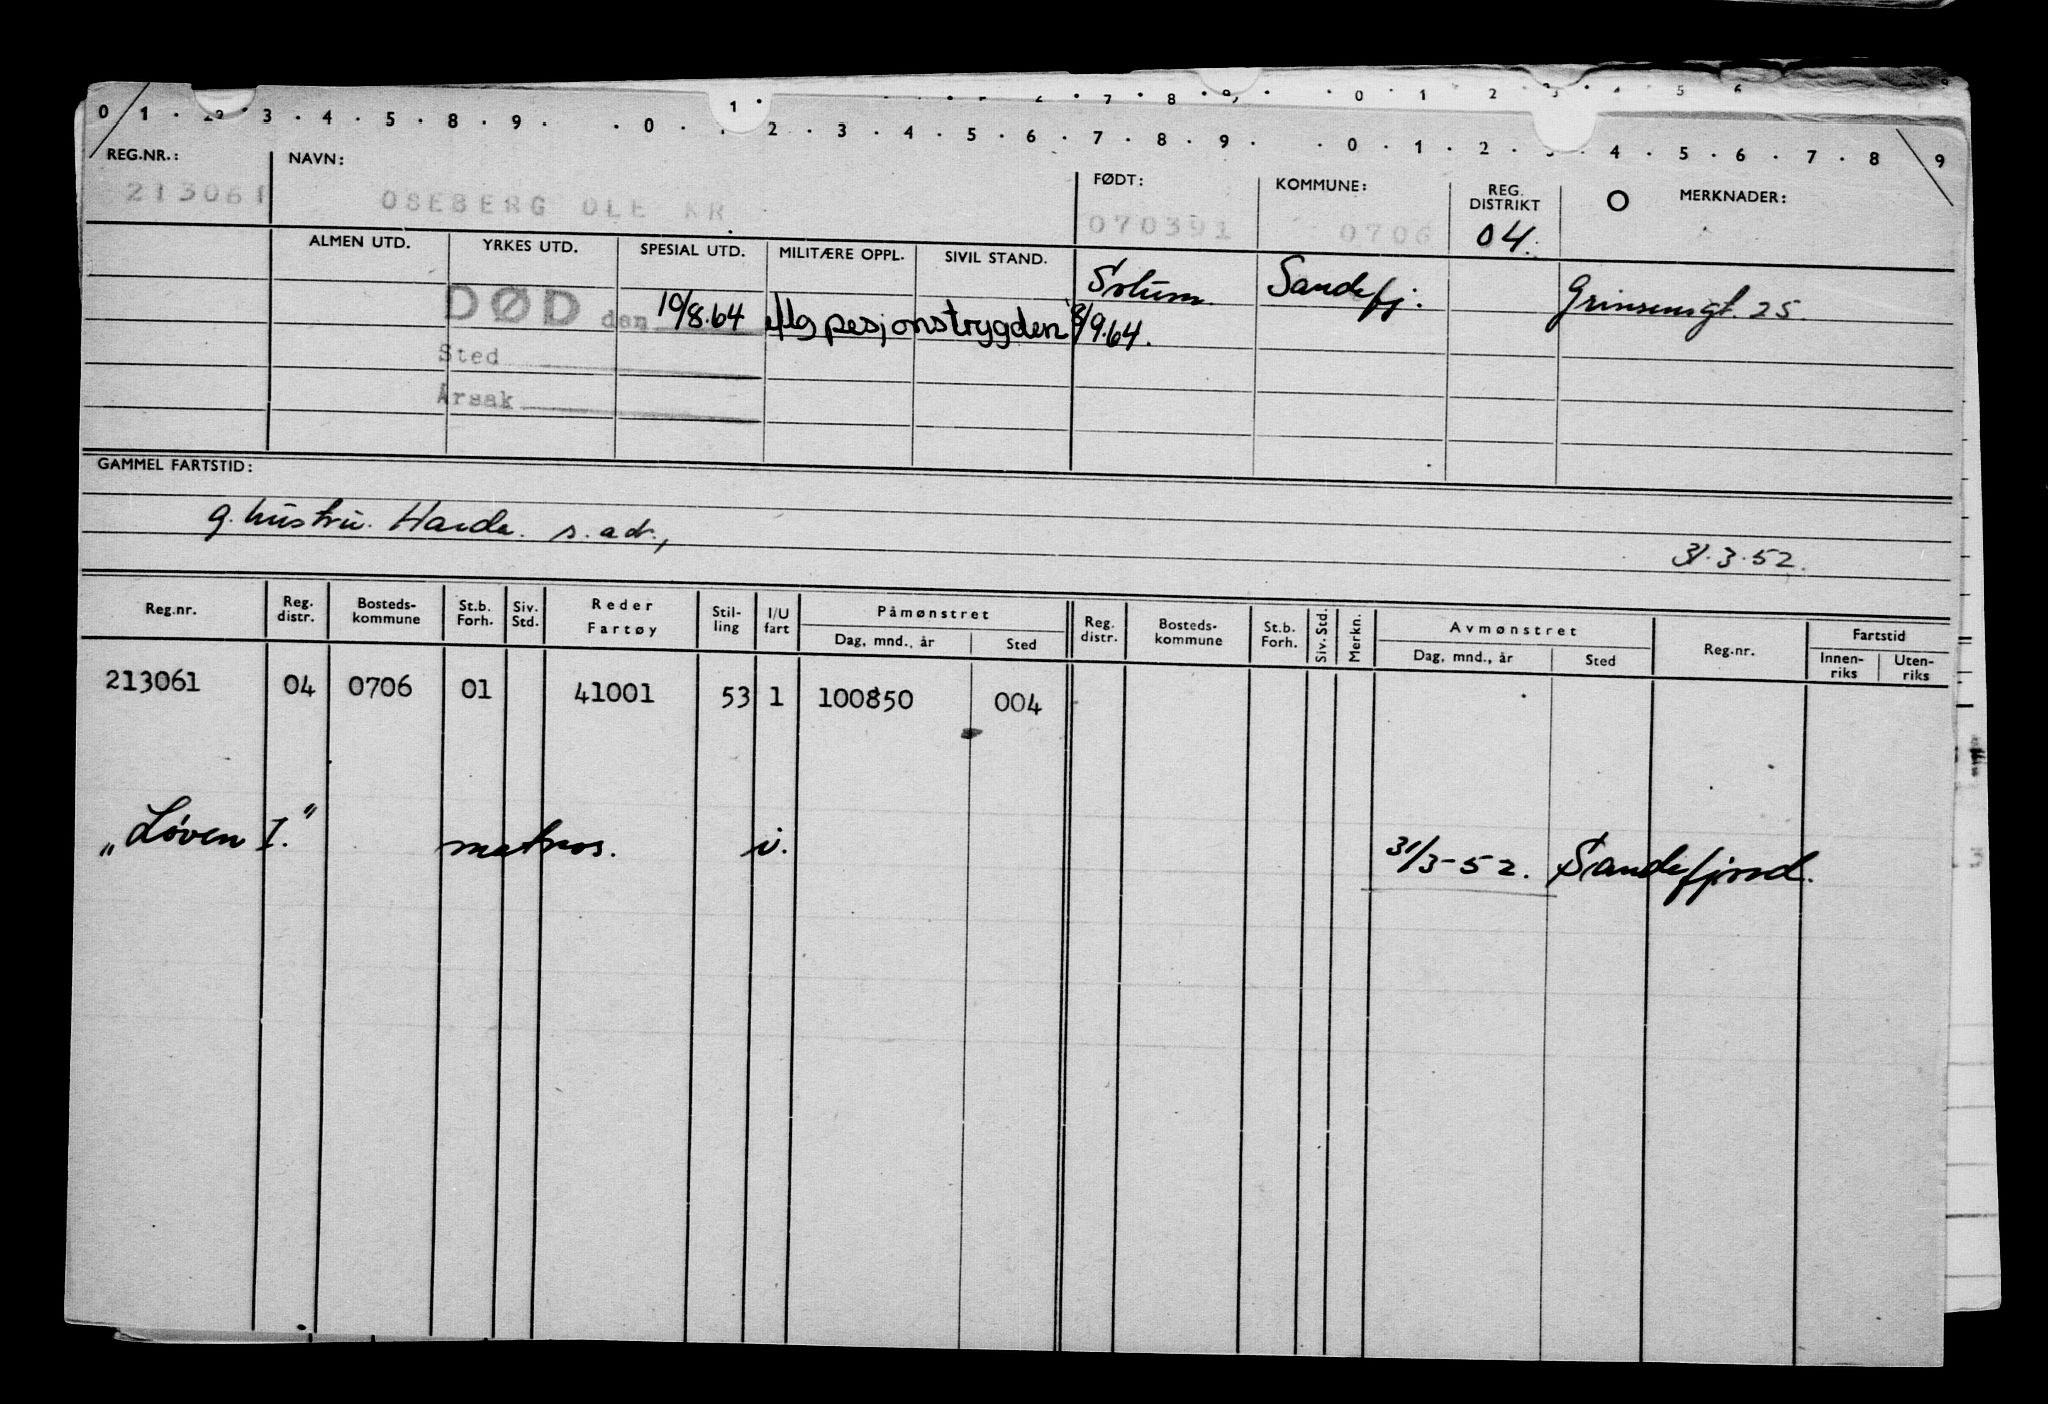 0 1 . 2 . 3 . 4 . 5 . 8 . 9 . . 0 . 1 . 2 . 3 . 4 . 5 . 6 . 7 . 8 . 9 . . 0 . 1 . 2 . 3 . 4 . 5 . 6 . 7 . 8 9
REG.NR.: NAVN: FØDT: KOMMUNE: REG. DISTRIKT MERKNADER:
213061 OSEBERG OLE KR 070391 0706 04.
ALMEN UTD. YRKES UTD. SPESIAL UTD. MILITÆRE OPPL. SIVIL STAND.
Solum Sandefj. 25.
DØD den 10/8.64 iflg pesjonstrygden 8/9.64.
Sted
Årsak
GAMMEL FARTSTID:
g. hustru. s. adr.,
31.3.52.
Reg.nr. Reg. distr. Bosteds-kommune St.b. Forh. Siv. Std. Reder Fartøy Stil-ling I/U fart Påmønstret Reg. distr. Bosteds-kommune St.b. Forh. Siv. Std. Merkn. Avmønstret Reg.nr. Fartstid
Dag, mnd., år Sted Dag, mnd., år Sted Innen-riks Uten-riks
213061 04 0706 01 41001 53 1 100850 004
"Løven I." matros. i. 31/3-52. Sandefjord.